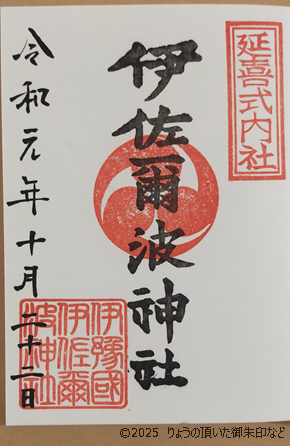 延喜式内社
伊佐爾波神社
令和元年十月二十二日
伊豫國
伊佐爾
波神社
©2025 りょうの頂いた御朱印など